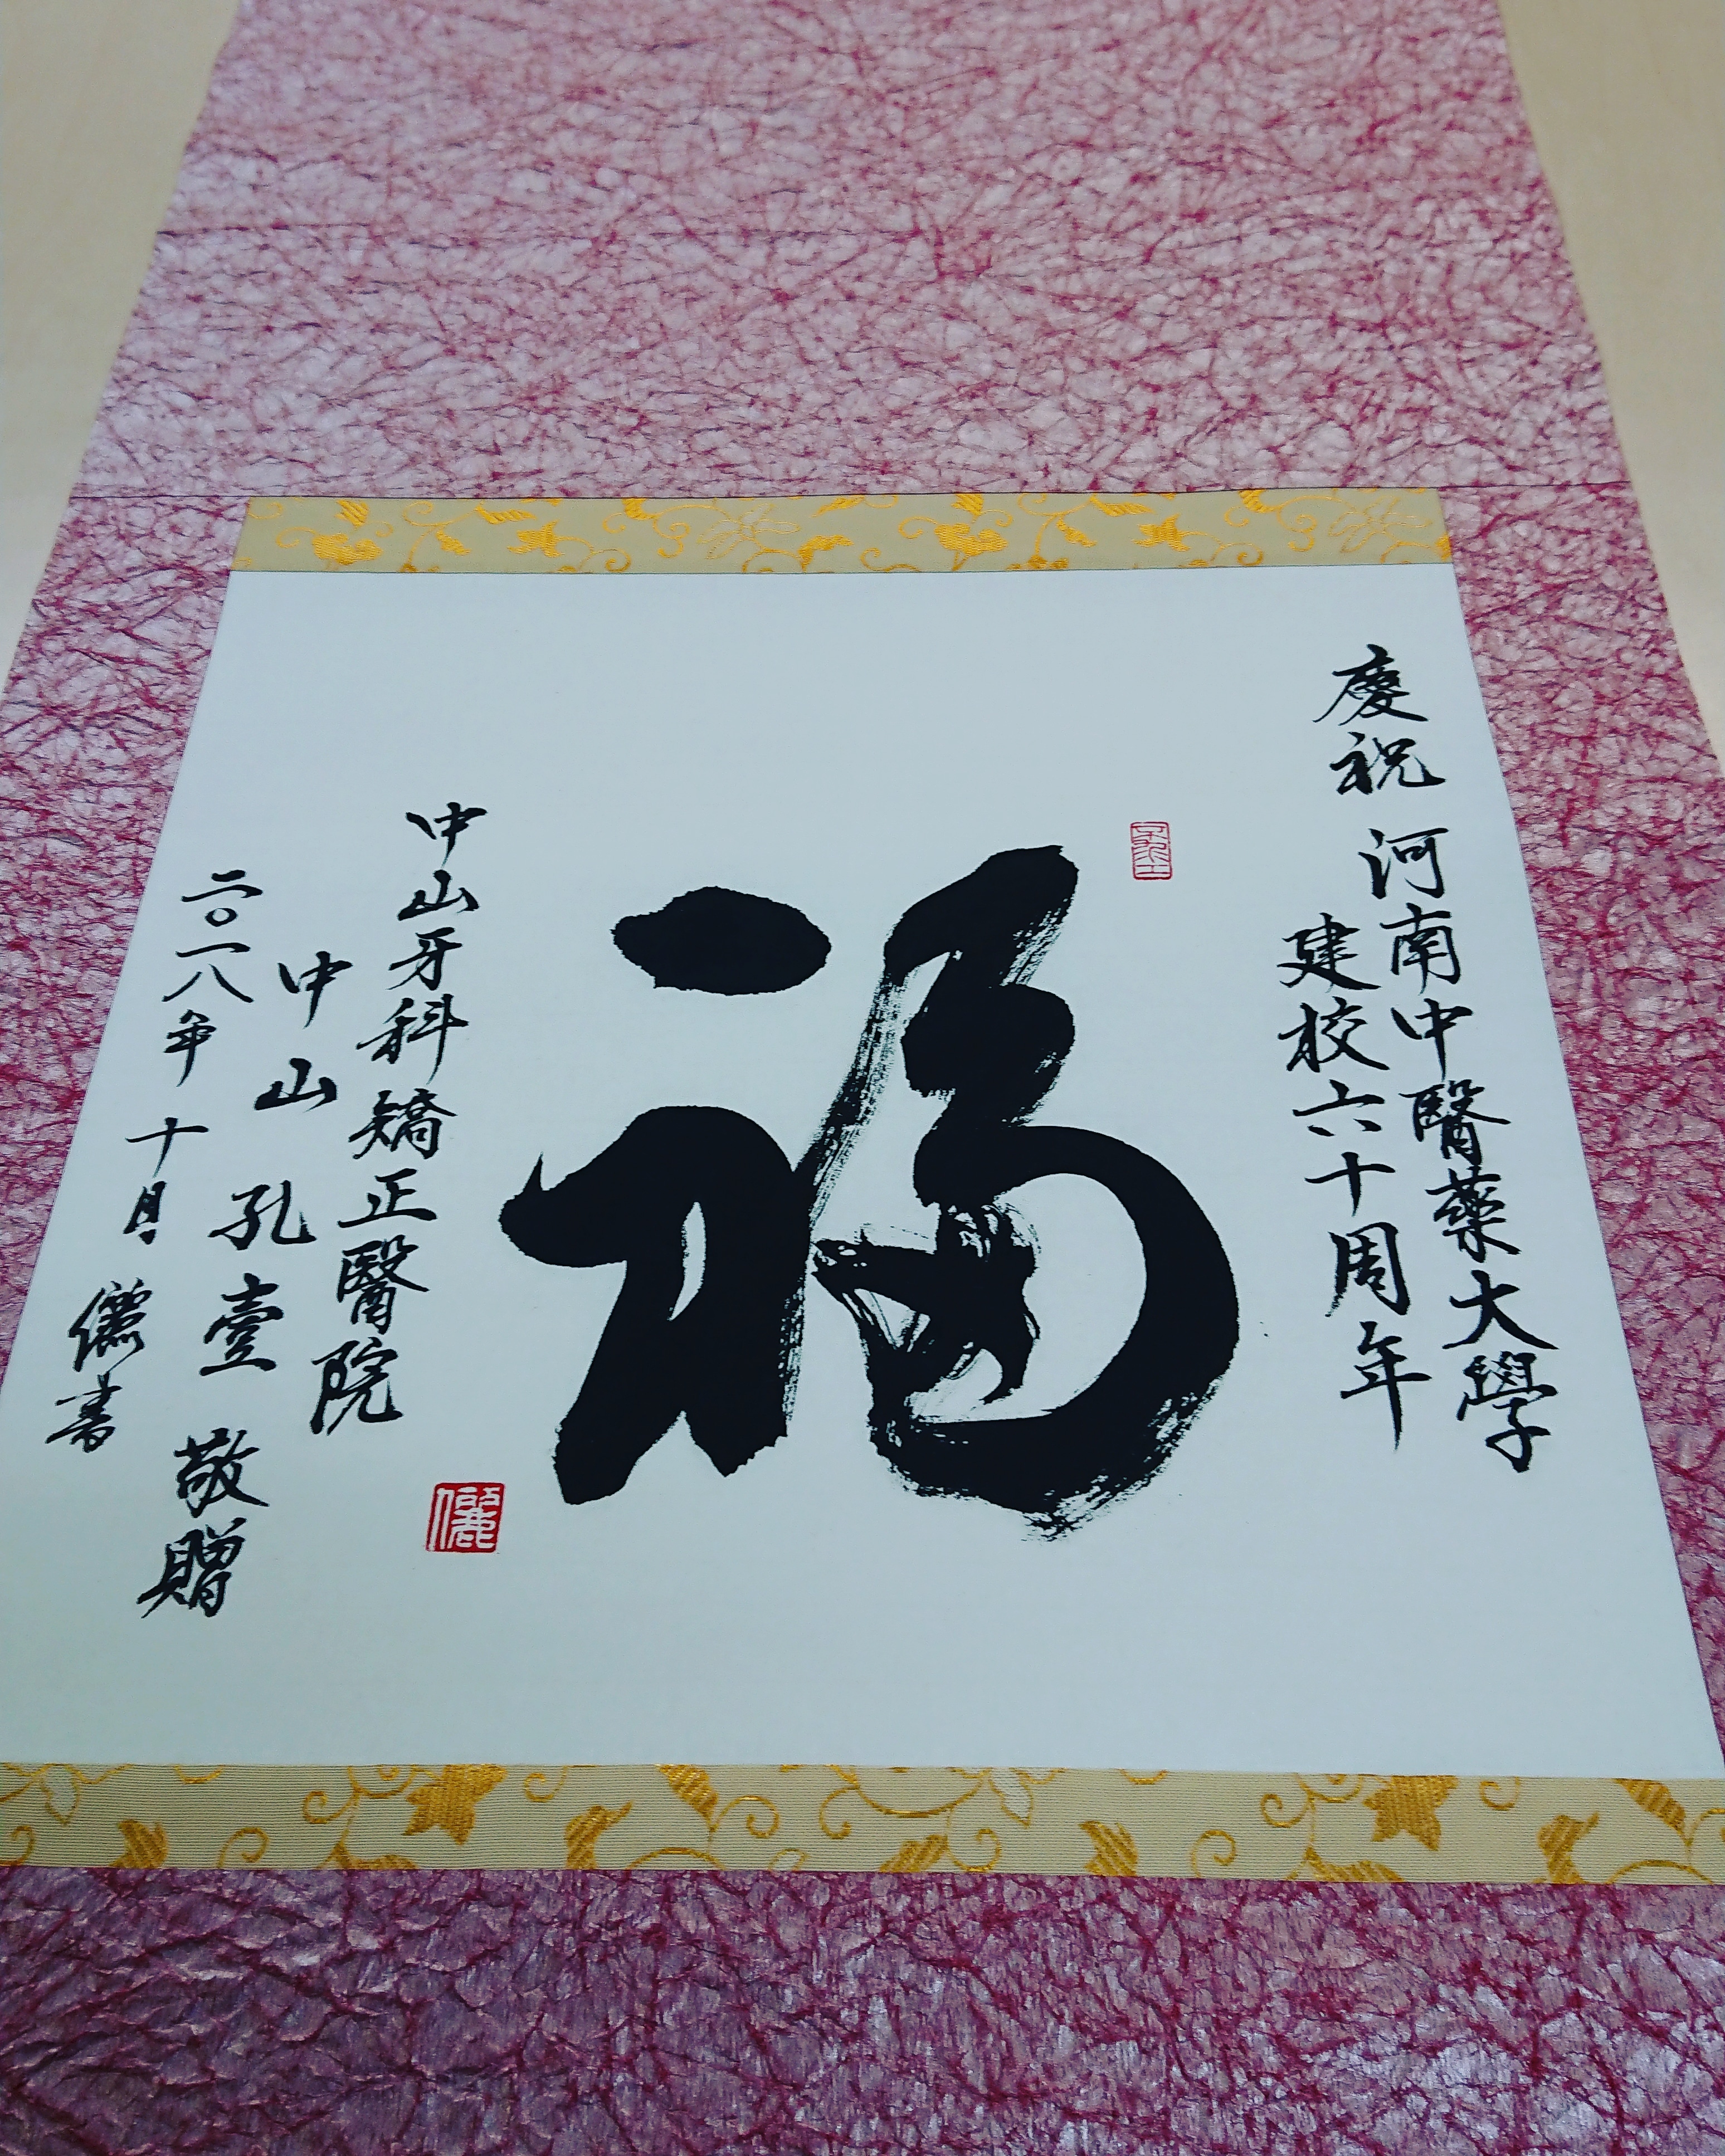 慶祝 河南中醫藥大學
建校六十周年
福
中山牙科矯正醫院
中山 孔壹 敬贈
二〇一八年 十月 儷書
儷